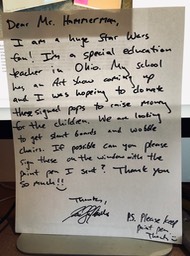 Dear Mr. Hammerman,
I am a huge Star Wars
fan! I'm a special education
teacher in Ohio. My school
has an Art Show coming up
and I was hoping to donate
these signed pops to raise money
for the children. We are looking
to get slant boards and wobble
chairs. If possible can you please
sign these on the window with the
paint pen I sent? Thank you
so much!!
Thanks,
P.S. Please keep
paint pen.
Thanks